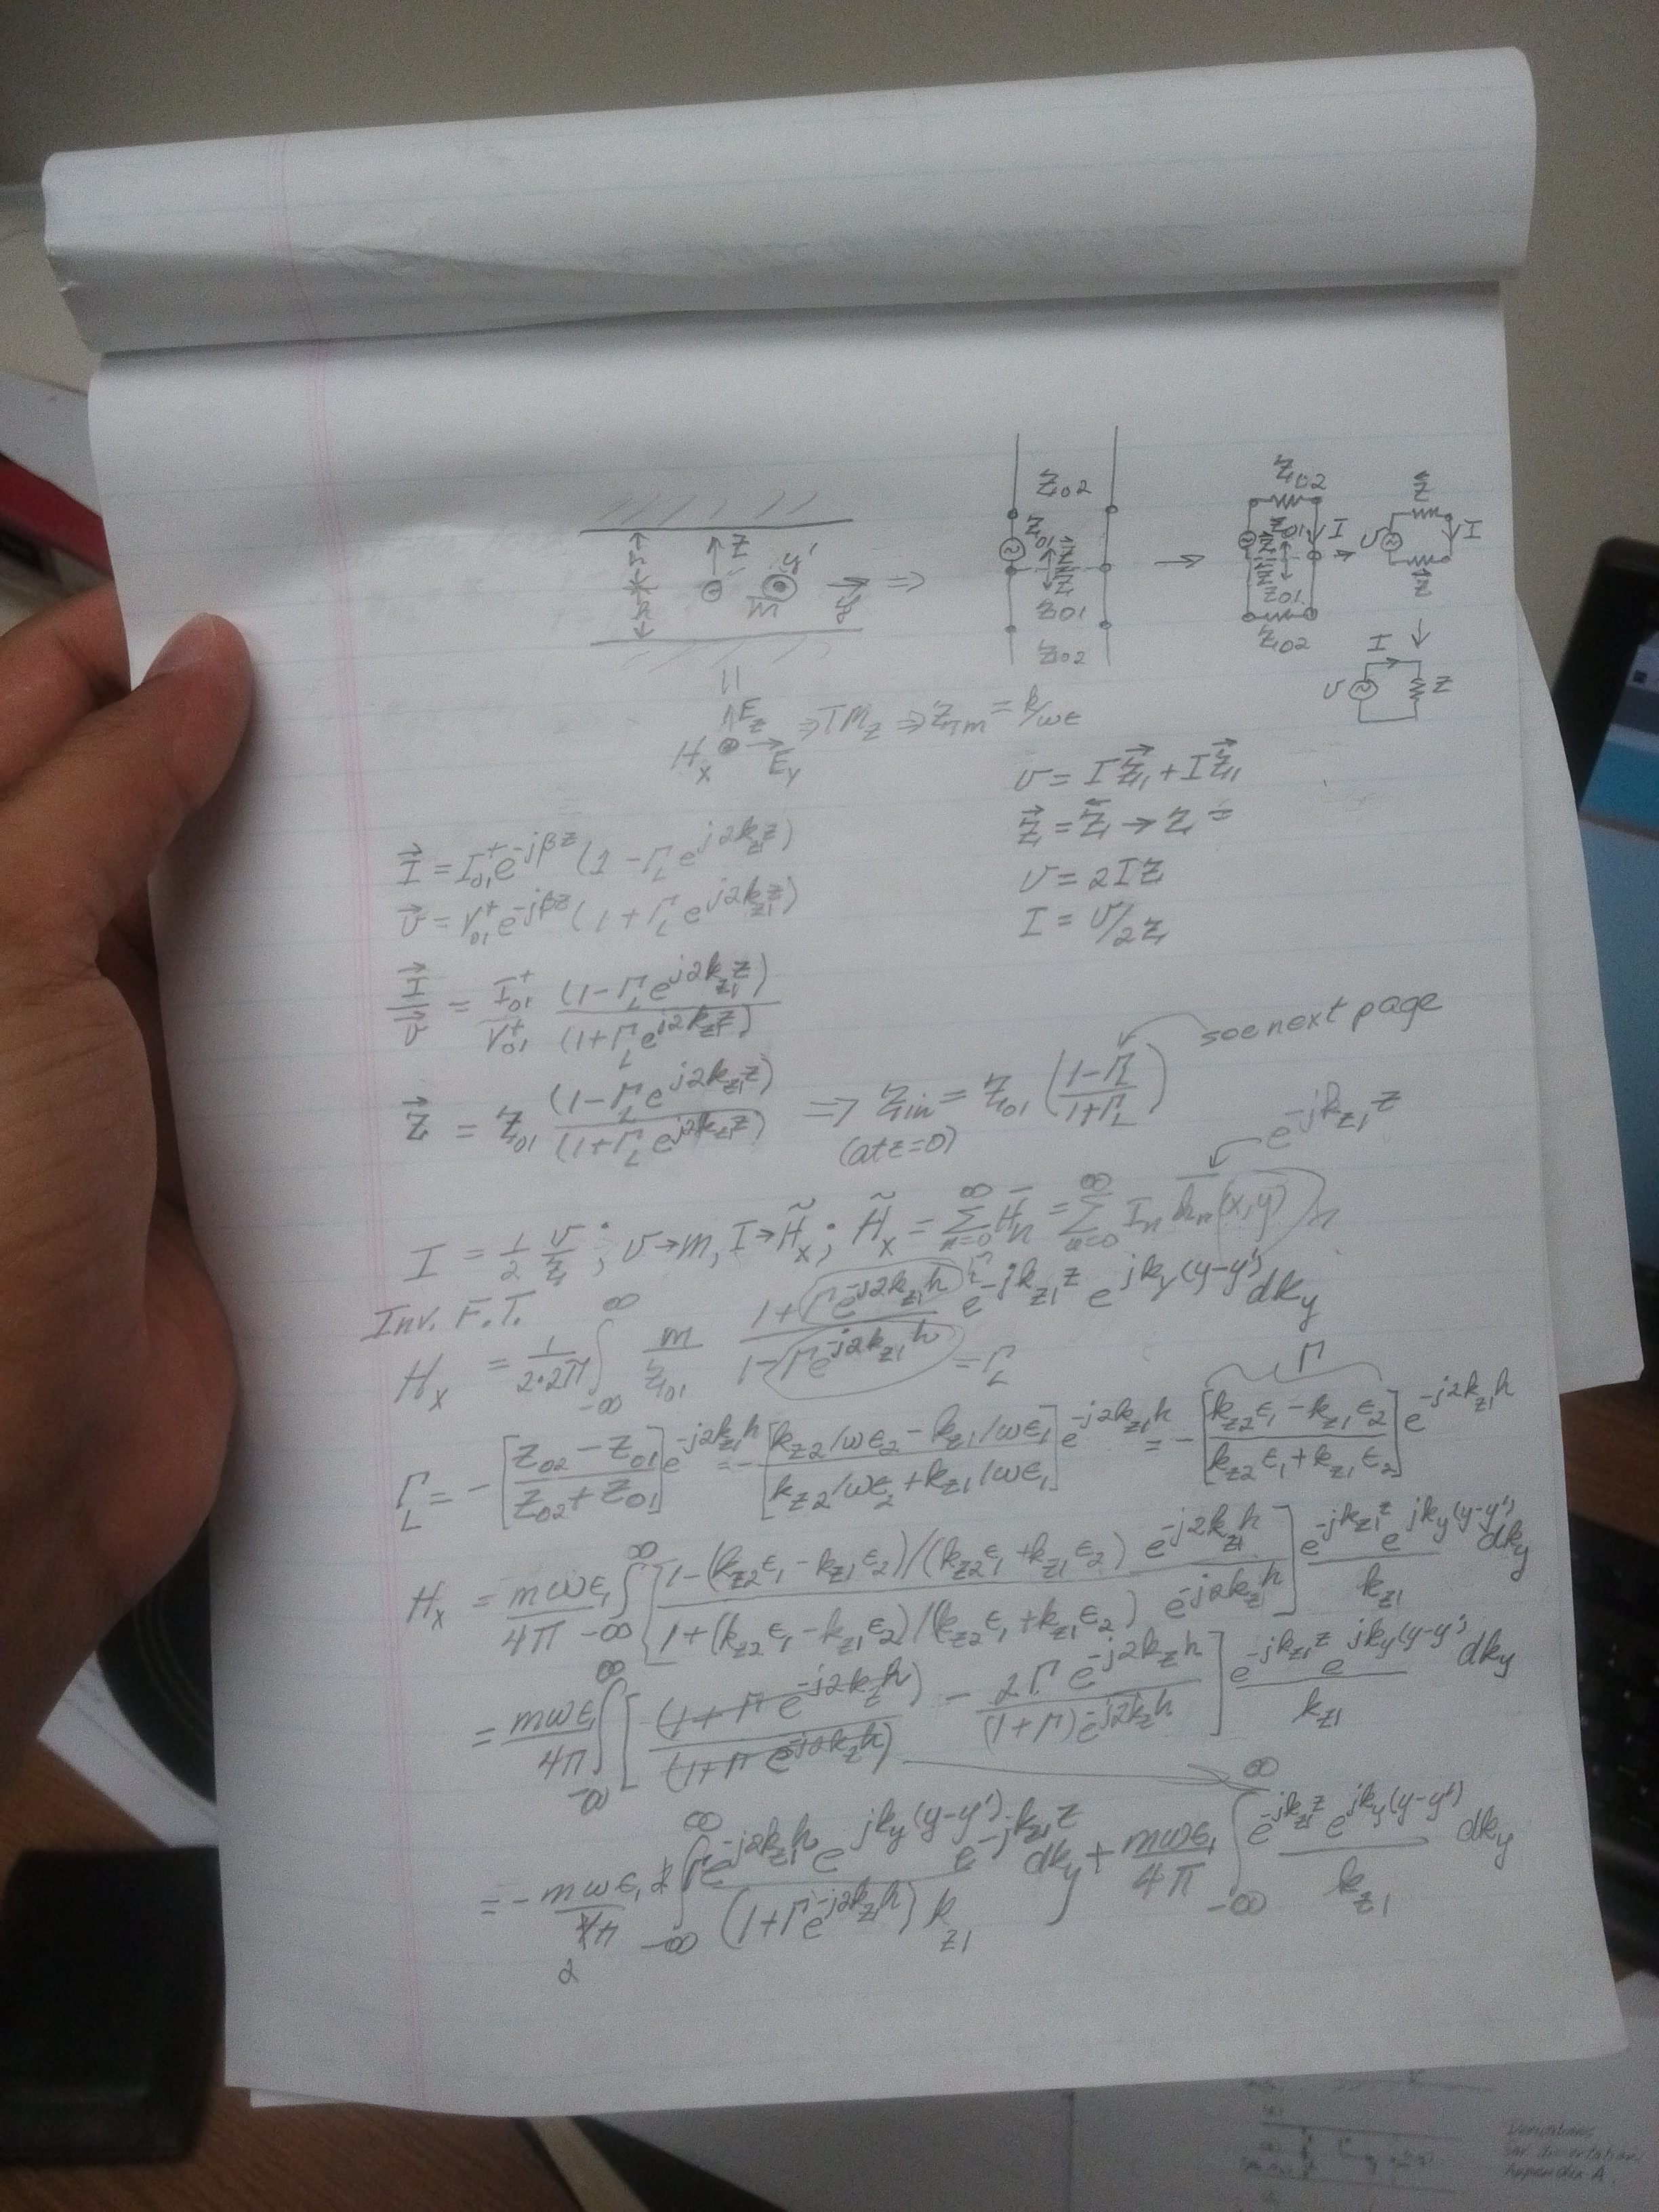 Z02
Z01
Z⃗
Z⃖
Z01
Z02
Z02
Z01
Z01
Z02
I
v
Z⃖
Z⃗
I
I
v
Z
h
h
z
y'
m
y
⇒
→
Ez
Hx Ey ⇒ TMz ⇒ ZTM = k/ωϵ
v = I Z⃗1 + I Z⃖1
Z⃗1 = Z⃖1 → Z1 =
v = 2IZ1
I = v/2Z1
I⃗ = I01⁺ e^{-jβz} (1 - Γ_L e^{j2k_{z1}z})
v⃗ = V01⁺ e^{-jβz} (1 + Γ_L e^{j2k_{z1}z})
I⃗/v⃗ = I01⁺/V01⁺ (1 - Γ_L e^{j2k_{z1}z})/(1 + Γ_L e^{j2k_{z1}z})
see next page
Z⃗ = Z01 (1 - Γ_L e^{j2k_{z1}z})/(1 + Γ_L e^{j2k_{z1}z}) ⇒ Zin = Z01 ((1 - Γ_L)/(1 + Γ_L))
(at z=0)
e^{-jk_{z1}z}
I = 1/2 v/Z1 ; v→m, I→H̃x ; H̃x = Σ_{n=0}^{∞} H̄n = Σ_{n=0}^{∞} In h̄n(x,y)
Inv. F.T.
Hx = 1/(2·2π) ∫_{-∞}^{∞} m/Z01 (1 + Γe^{-j2k_{z1}h})/(1 - Γe^{-j2k_{z1}h}) e^{-jk_{z1}z} e^{jk_y(y-y')} dk_y
= Γ_L
Γ
Γ_L = -[(Z02 - Z01)/(Z02 + Z01)] e^{-j2k_{z1}h} = -[(k_{z2}/ωϵ2 - k_{z1}/ωϵ1)/(k_{z2}/ωϵ2 + k_{z1}/ωϵ1)] e^{-j2k_{z1}h} = -[(k_{z2}ϵ1 - k_{z1}ϵ2)/(k_{z2}ϵ1 + k_{z1}ϵ2)] e^{-j2k_{z1}h}
Hx = mωϵ1/4π ∫_{-∞}^{∞} [(1 - (k_{z2}ϵ1 - k_{z1}ϵ2)/(k_{z2}ϵ1 + k_{z1}ϵ2) e^{-j2k_{z1}h})/(1 + (k_{z2}ϵ1 - k_{z1}ϵ2)/(k_{z2}ϵ1 + k_{z1}ϵ2) e^{-j2k_{z1}h})] e^{-jk_{z1}z} e^{jk_y(y-y')}/k_{z1} dk_y
= mωϵ1/4π ∫_{-∞}^{∞} [(1 + Γ e^{-j2k_z h})/(1 + Γ e^{-j2k_z h}) - 2Γ e^{-j2k_z h}/(1 + Γ)e^{-j2k_z h}] e^{-jk_{z1}z} e^{jk_y(y-y')}/k_{z1} dk_y
= - mωϵ1 2/4π ∫_{-∞}^{∞} Γe^{-j2k_{z1}h} e^{jk_y(y-y')} e^{-jk_{z1}z}/((1 + Γe^{-j2k_{z1}h}) k_{z1}) dk_y + mωϵ1/4π ∫_{-∞}^{∞} e^{-jk_{z1}z} e^{jk_y(y-y')}/k_{z1} dk_y
2
for dissertation
Appendix A.